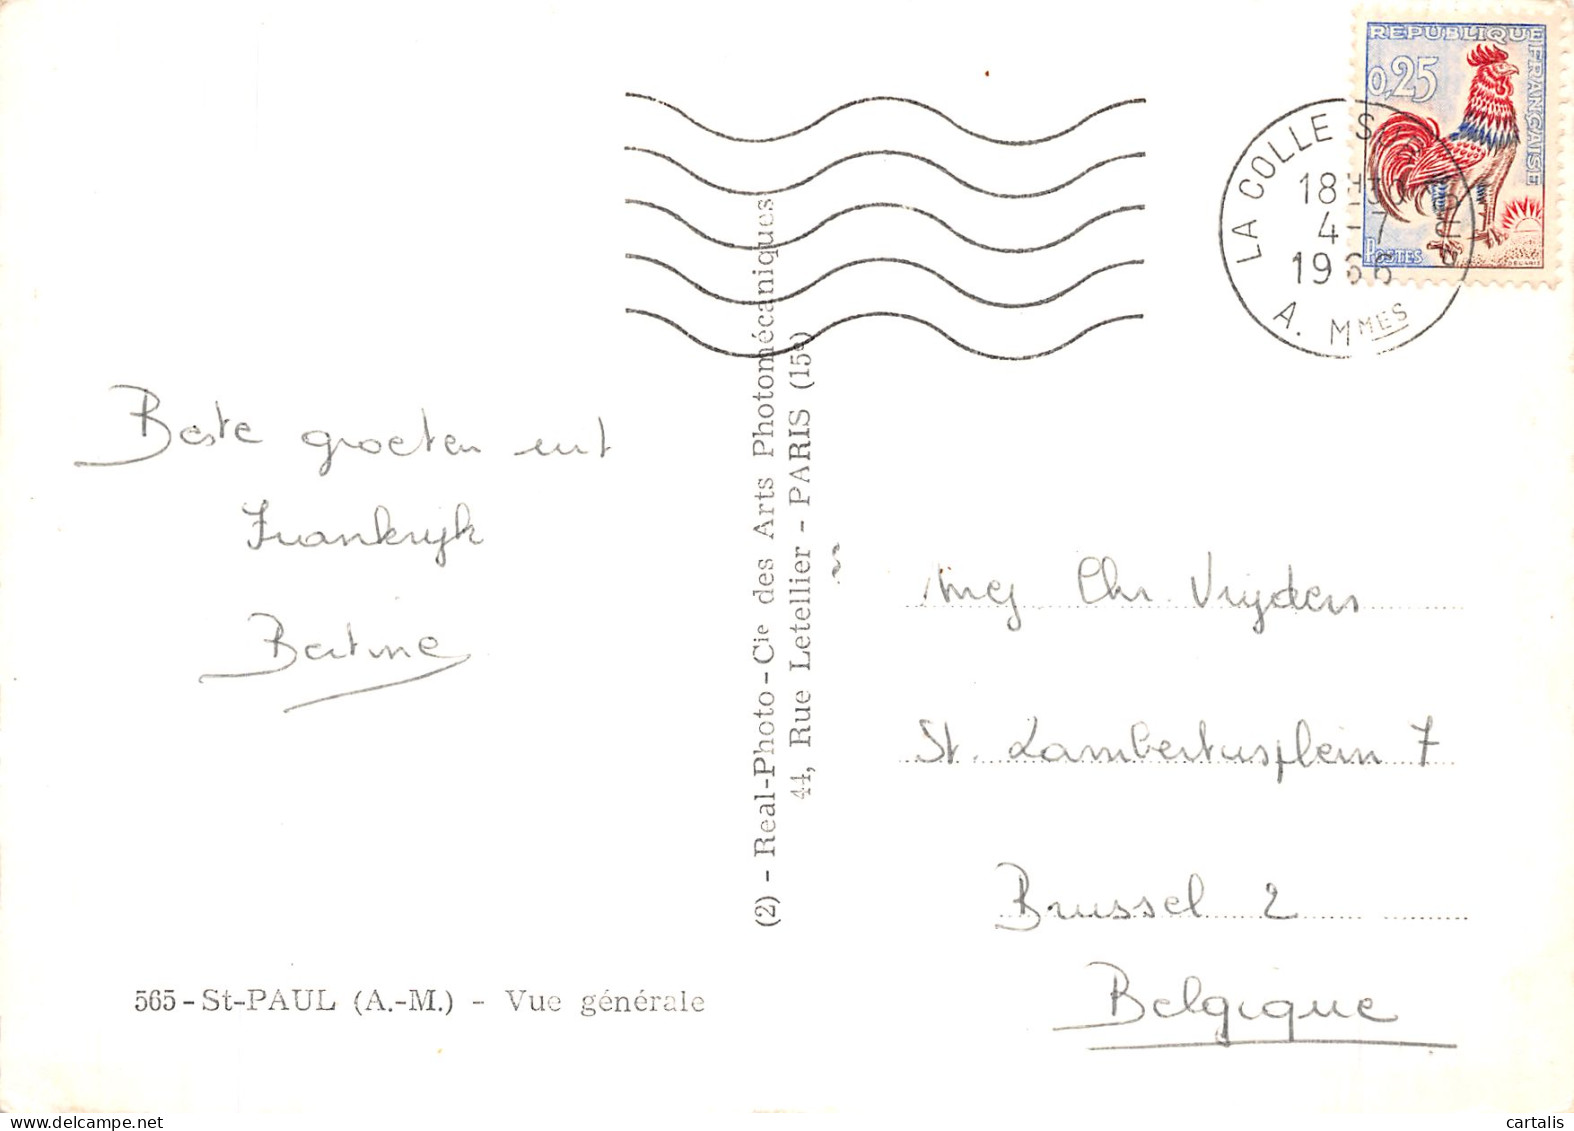 REPUBLIQUE
FRANÇAISE
0,25
POSTES
LA COLLE S
18H30
4-7
1966
A. MMES
Beste groeten uit
Frankrijk
Bertine
(2) - Real-Photo-Cie des Arts Photomécaniques
44, Rue Letellier - PARIS (15e)
Chr Vrijders
St. Lambertusplein 7
Brussel 2
Belgique
565 - St-PAUL (A.-M.) - Vue générale
www.cartalis.com